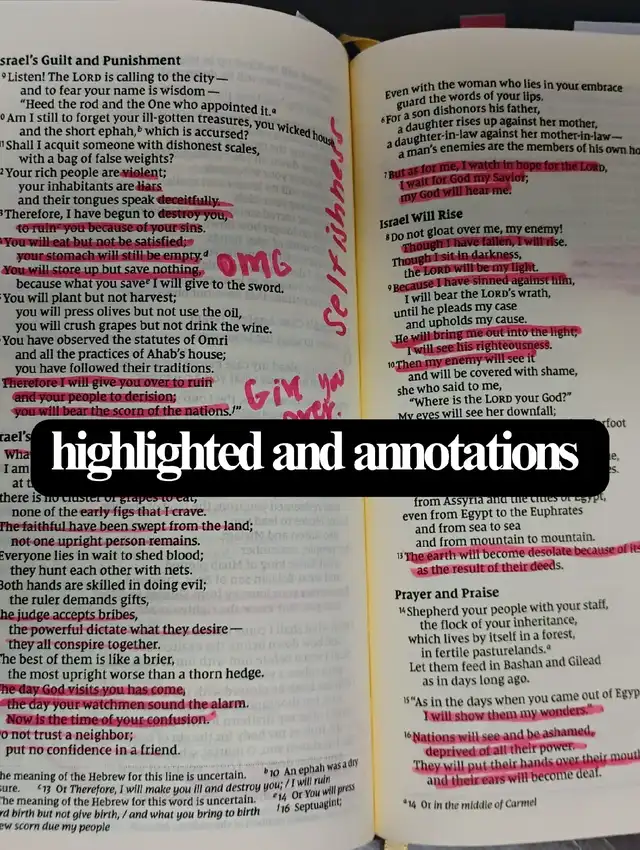 srael's Guilt and Punishment
9Listen! The LORD is calling to the city—
and to fear your name is wisdom—
"Heed the rod and the One who appointed it.a
10Am I still to forget your ill-gotten treasures, you wicked house,
and the short ephah,b which is accursed?
11Shall I acquit someone with dishonest scales,
with a bag of false weights?
2Your rich people are violent;
your inhabitants are liars
and their tongues speak deceitfully.
3Therefore, I have begun to destroy you,
to ruinc you because of your sins.
You will eat but not be satisfied;
your stomach will still be empty.d
You will store up but save nothing,
because what you savee I will give to the sword.
You will plant but not harvest;
you will press olives but not use the oil,
you will crush grapes but not drink the wine.
You have observed the statutes of Omri
and all the practices of Ahab's house;
you have followed their traditions.
Therefore I will give you over to ruin
and your people to derision;
you will bear the scorn of the nations.f"
OMG
Selfishness
Give you
over.
rael's
Wha
I am
at t
there is no cluster of grapes to eat,
none of the early figs that I crave.
The faithful have been swept from the land;
not one upright person remains.
Everyone lies in wait to shed blood;
they hunt each other with nets.
Both hands are skilled in doing evil;
the ruler demands gifts,
he judge accepts bribes,
the powerful dictate what they desire—
they all conspire together.
The best of them is like a brier,
the most upright worse than a thorn hedge.
The day God visits you has come,
the day your watchmen sound the alarm.
Now is the time of your confusion.
o not trust a neighbor;
put no confidence in a friend.
he meaning of the Hebrew for this line is uncertain. b10 An ephah was a dry
sure. c13 Or Therefore, I will make you ill and destroy you; / I will ruin
The meaning of the Hebrew for this word is uncertain. e14 Or You will press
rd birth but not give birth, / and what you bring to birth f16 Septuagint;
ew scorn due my people
highlighted and annotations
Even with the woman who lies in your embrace
guard the words of your lips.
6For a son dishonors his father,
a daughter rises up against her mother,
a daughter-in-law against her mother-in-law—
a man's enemies are the members of his own ho
7But as for me, I watch in hope for the LORD,
I wait for God my Savior;
my God will hear me.
Israel Will Rise
8Do not gloat over me, my enemy!
Though I have fallen, I will rise.
Though I sit in darkness,
the LORD will be my light.
9Because I have sinned against him,
I will bear the LORD's wrath,
until he pleads my case
and upholds my cause.
He will bring me out into the light;
I will see his righteousness.
10Then my enemy will see it
and will be covered with shame,
she who said to me,
"Where is the LORD your God?"
My eyes will see her downfall;
rfoot
from Assyria and the cities of Egypt,
even from Egypt to the Euphrates
and from sea to sea
and from mountain to mountain.
13The earth will become desolate because of its
as the result of their deeds.
Prayer and Praise
14Shepherd your people with your staff,
the flock of your inheritance,
which lives by itself in a forest,
in fertile pasturelands.a
Let them feed in Bashan and Gilead
as in days long ago.
15"As in the days when you came out of Egyp
I will show them my wonders."
16Nations will see and be ashamed,
deprived of all their power.
They will put their hands over their mouth
and their ears will become deaf.
a14 Or in the middle of Carmel